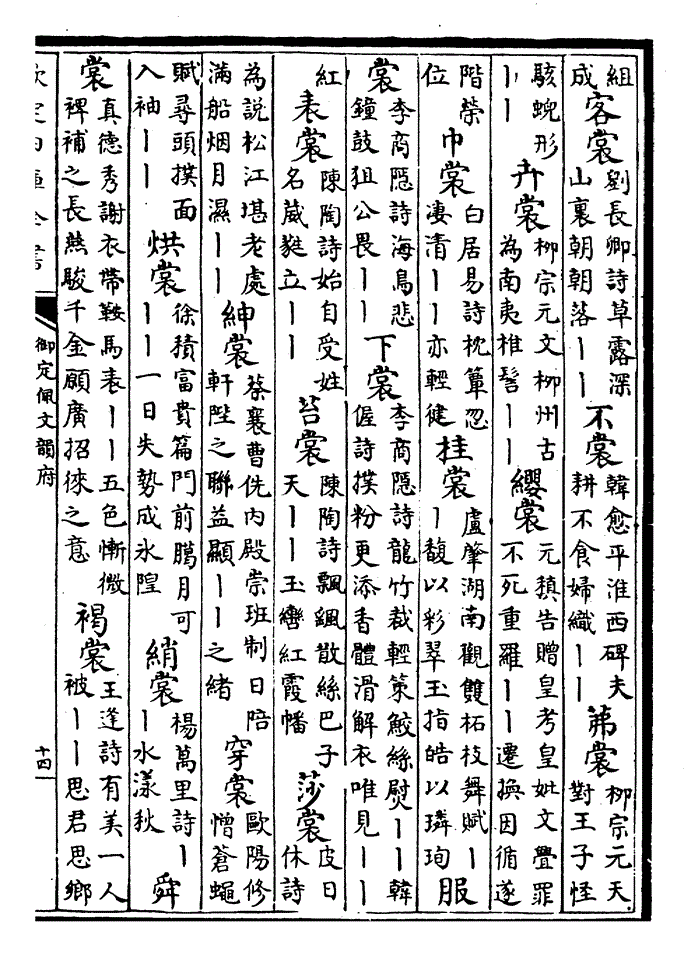 組成客裳劉長卿詩草露深山裏朝朝落丨丨不裳韓愈平淮西碑夫耕不食婦織丨丨茀裳柳宗元天對王子怪
駭蜺形丨丨卉裳柳宗元文柳州古為南夷椎髻丨丨纓裳元稹告贈皇考皇妣文罍罪不死重羅丨丨遷換因循遂
階榮位巾裳白居易詩枕簟忽凄清丨丨亦輕健桂裳盧肇湖南觀雙柘枝舞賦丨丨馥以彩翠玉指皓以璘珣服
裳李商隱詩海鳥悲鐘鼓狙公畏丨丨下裳李商隱詩龍竹裁輕策鮫絲熨丨丨韓偓詩撲粉更添香體滑解衣唯見丨丨
紅表裳陳陶詩始自受姓名葳蕤立丨丨苔裳陳陶詩飄颻散絲巴子天丨丨玉轡紅霞幡莎裳皮日休詩
為說松江堪老處滿船烟月濕丨丨紳裳蔡襄曹侁内殿崇班制日陪軒陛之聯益顯丨丨之緒穿裳歐陽修憎蒼蠅
賦尋頭撲面入袖丨丨烘裳徐積富貴篇門前臈月可丨丨一日失勢成氷隍綃裳楊萬里詩丨丨水漾秋舜
裳真德秀謝衣帶鞍馬表丨丨五色慚微裨補之長燕駿千金願廣招徠之意褐裳王逢詩有美一人被丨丨思君思鄉
欽定四庫全書
御定佩文韻府
十四